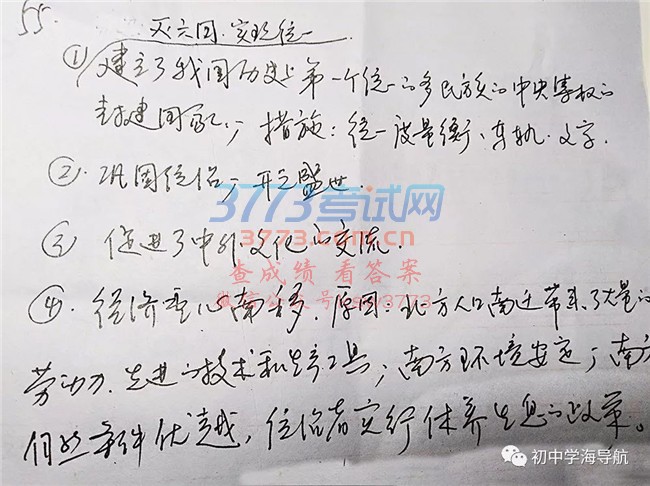 55
灭六国，实现统一
① 建立了我国历史上第一个统一的多民族的中央集权的
封建国家；措施：统一度量衡、车轨、文字.
② 巩固统治；开元盛世.
3773考试网
3773.com.cn
③ 促进了中外文化的交流.
查成绩 看答案
④. 经济重心南移. 原因：北方人口南迁带来了大量的
劳动力、先进的技术和生产工具；南方环境安定；南方
自然条件优越，统治者实行休养生息的政策。
初中学海导航